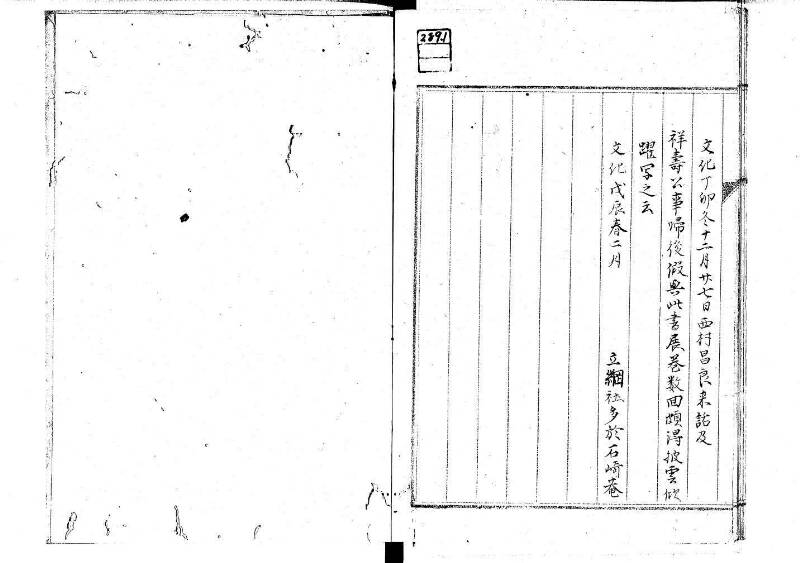 289.1
文化丁卯冬十二月廿七日西村昌良来話及
祥壽公事帰後假與此書展卷数回頗得披雲欣
躍写之云
文化戊辰春二月
立綱社多於石崎菴